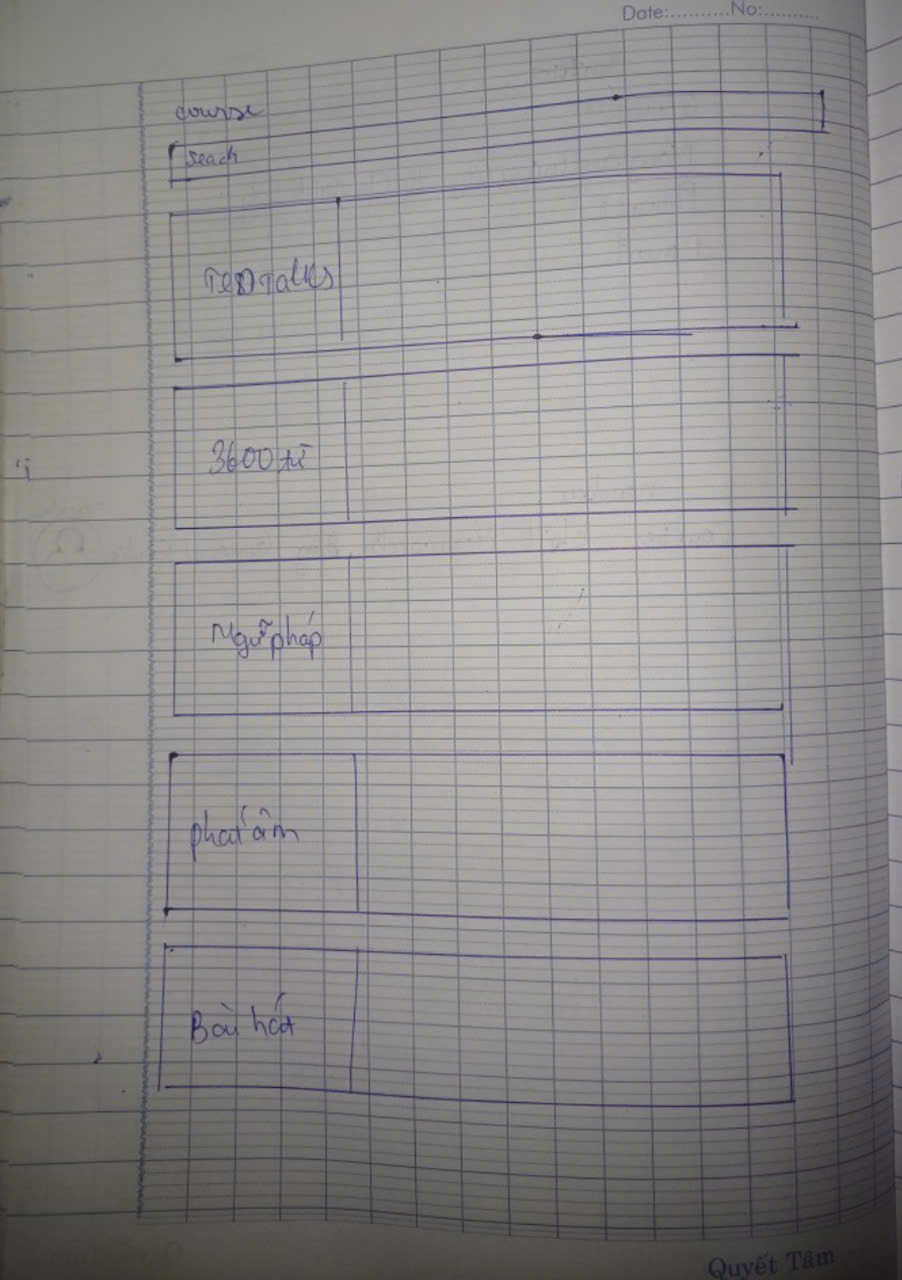 Date:..........No:..........
course
seach
TED Talks
3600 từ
Ngữ pháp
phát âm
Bài hát
Quyết Tâm